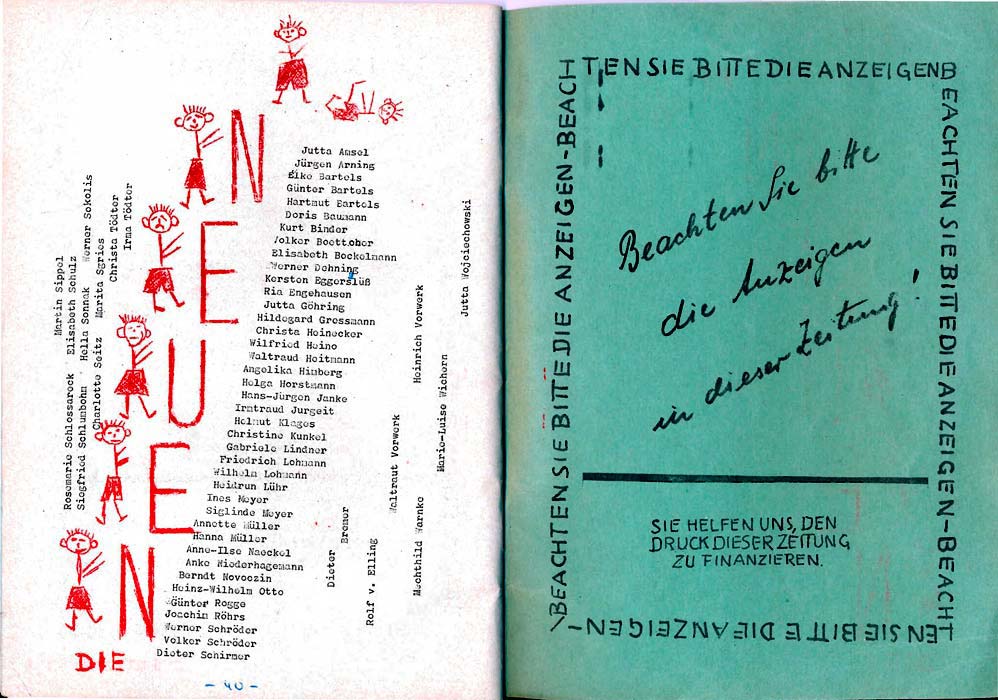 DIE
NEUEN
Jutta Amsel
Jürgen Arning
Eike Bartels
Günter Bartels
Hartmut Bartels
Doris Baumann
Kurt Binder
Volker Boettcher
Elisabeth Bockelmann
Werner Dehning
Kersten Eggersslüß
Ria Engehausen
Jutta Göhring
Hildegard Gressmann
Christa Heinecker
Wilfried Heino
Waltraud Heitmann
Angelika Himberg
Helga Horstmann
Hans-Jürgen Janke
Irmtraud Jurgeit
Helmut Klages
Christine Kunkel
Gabriele Lindner
Friedrich Lohmann
Wilhelm Lohmann
Heidrun Lühr
Ines Meyer
Siglinde Meyer
Annette Müller
Hanna Müller
Anne-Ilse Naeckel
Anke Niederhagemann
Berndt Novoczin
Heinz-Wilhelm Otto
Günter Rogge
Joachim Röhrs
Werner Schröder
Volker Schröder
Dieter Schirmer
Rosemarie Schlossareck
Siegfried Schlumbohm
Elisabeth Schulz
Charlotte Seitz
Marita Sgries
Martin Sippel
Hella Sonnak
Werner Sokolis
Christa Tödter
Irma Tödter
Dieter Bremer
Rolf v. Elling
Waltraut Vorwerk
Heinrich Vorwerk
Mechthild Warnke
Marie-Luise Wichern
Jutta Wojciechowski
- 40 -
BEACHTEN SIE BITTE DIE ANZEIGEN-BEACH
TEN SIE BITTE DIE ANZEIGEN
BEACHTEN SIE BITTE DIE ANZEIGEN-BEACH
TEN SIE BITTE DIE ANZEIGEN-
Beachten Sie bitte
die Anzeigen
in dieser Zeitung!
SIE HELFEN UNS, DEN
DRUCK DIESER ZEITUNG
ZU FINANZIEREN.